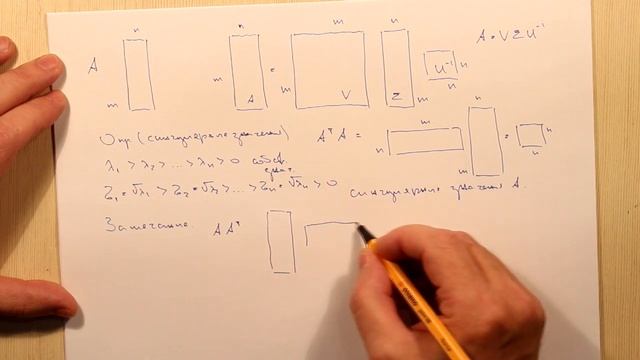 n n m n
A m m A = m V Σ m U⁻¹ n n A = V Σ U⁻¹
Опр (сингулярные значения) AᵀA = n m m n = n n
λ₁ > λ₂ > ... > λₙ > 0 собств. знач.
Σ₁ = √λ₁ > Σ₂ = √λ₂ > ... > Σₙ = √λₙ > 0 сингулярные значения A.
Замечание. A Aᵀ